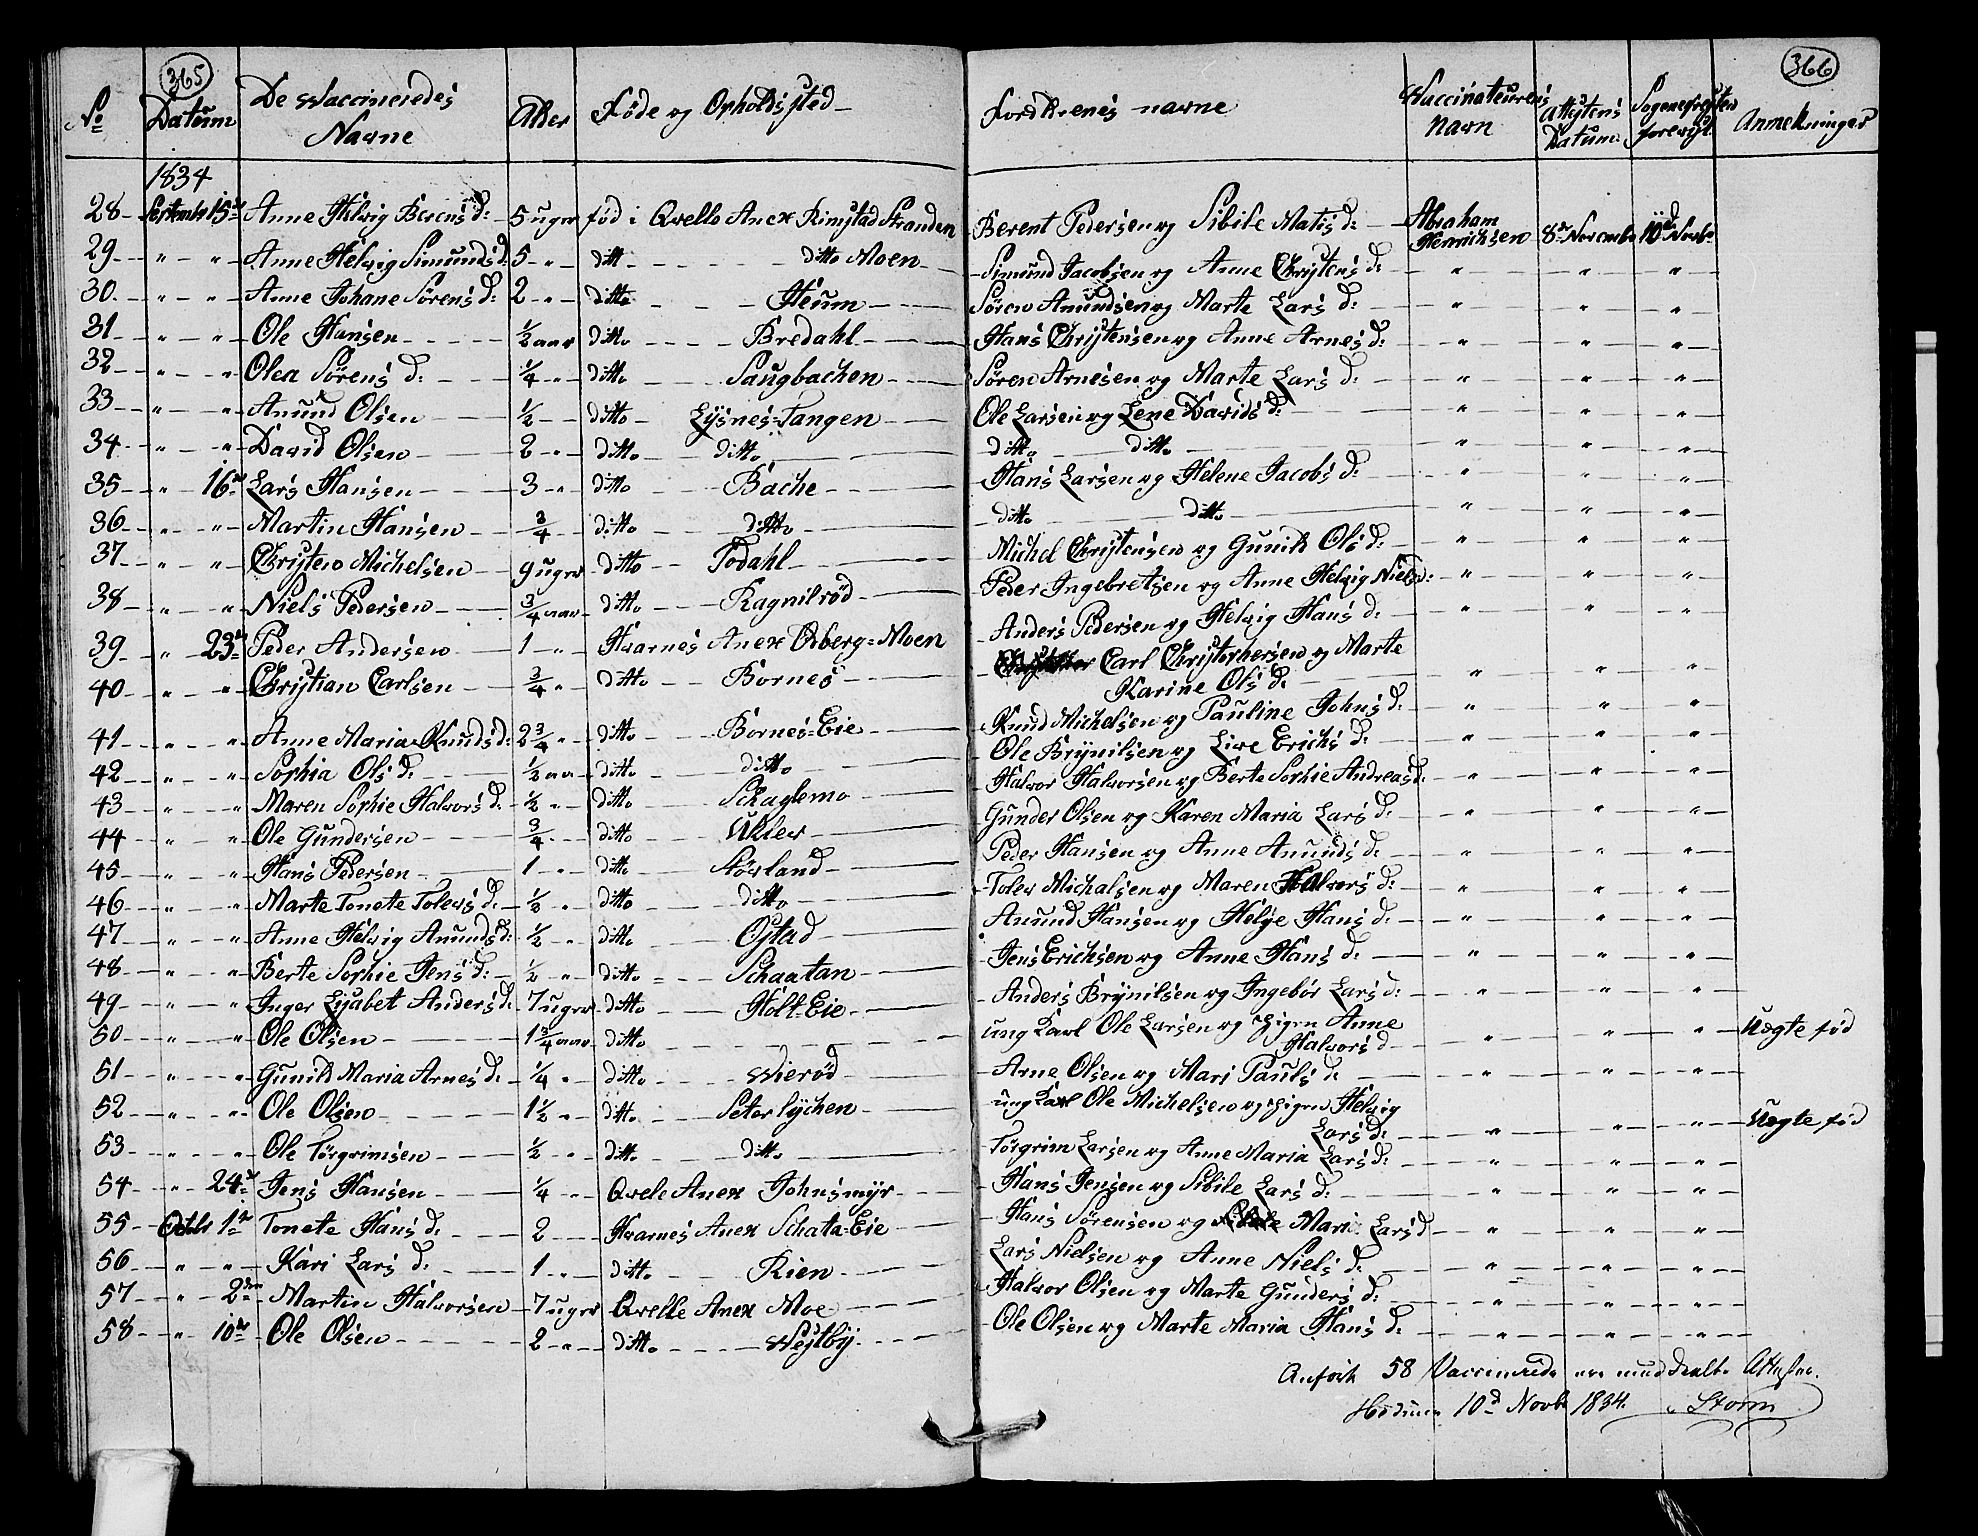 365
No Datum De Vaccineredes Navne Alder Føde og Opholdssted
Forældrenes navne Vaccinateurens Navn Attestens Datum Anmerkninger
366
1834
28 September 15de Anne Helvig Berens d: 5 uger fød i Qvelle Anex Rimstad Stranden Berent Pedersen og Sibile Matis d: Abraham Henrichsen 8de November 10de Novbr
29 " " Anne Helvig Simunds d: 5 " ditto ditto Moen Simund Jacobsen og Anne Christens d: " " "
30 " " Anne Johane Sørens d: 2 " ditto Heum Søren Amundsen og Marte Lars d: " " "
31 " " Ole Hansen ½ aar ditto Bredahl Hans Christensen og Anne Arnes d: " " "
32 " " Olea Sørens d: ¼ " ditto Saugbachen Søren Arnesen og Marte Lars d: " " "
33 " " Anund Olsen ½ ditto Lysnes-Tangen Ole Larsen og Lene Davids d: " " "
34 " " David Olsen 2 " ditto ditto ditto ditto " " "
35 " 16de Lars Hansen 3 " ditto Bache Hans Larsen og Helene Jacobs d: " " "
36 " " Martin Hansen ¾ ditto ditto ditto ditto " " "
37 " " Christen Michelsen 9 uger ditto Todahl Michel Christensen og Gunild Ols d: " " "
38 " " Niels Pedersen ¾ aar ditto Ragnilrød Peder Ingebretsen og Anne Helvig Niels d: " " "
39 " 23de Peder Andersen 1 " Hvarnes Anex Odberg-Moen Anders Pedersen og Helvig Hans d: " " "
40 " " Christian Carlsen ¾ " ditto Bornes Carl Christophersen og Marte
Karine Ols d: " " "
41 " " Anne Maria Knuds d: 2¾ " ditto Bornes-Eie Knud Michelsen og Pauline Johns d: " " "
42 " " Sophia Ols d: ½ aar ditto ditto Ole Brynilsen og Live Erichs d: " " "
43 " " Maren Sophie Halvors d: ½ " ditto Skaglemo Halvor Halvorsen og Berte Sophie Andreas d: " " "
44 " " Ole Gundersen ¾ " ditto Uklev Gunder Olsen og Karen Maria Lars d: " " "
45 " " Hans Pedersen 1 " ditto Størland Peder Hansen og Anne Anunds d: " " "
46 " " Marte Tonete Tolevs d: ½ " ditto ditto Tolev Michalsen og Maren Halvors d: " " "
47 " " Anne Helvig Anunds d: ½ " ditto Ostad Anund Hansen og Helge Hans d: " " "
48 " " Berte Sophie Jens d: ½ " ditto Schaatan Jens Erichsen og Anne Hans d: " " "
49 " " Inger Lisabet Anders d: 7 uger ditto Holt-Eie Anders Brynilsen og Ingebor Lars d: " " "
50 " " Ole Olsen 1¾ aar ditto ung Karl Ole Larsen og pigen Anne
Halvors d " " " Uegte fød
51 " " Gunild Maria Arnes d: ¼ " ditto Vierød Arne Olsen og Mari Pauls d: " " "
52 " " Ole Olsen 1½ " ditto Seterlychen ung Karl Ole Michelsen og pigen Helvig
Lars d: " " " Uegte fød
53 " " Ole Torgrimsen ½ " ditto ditto Torgrim Larsen og Anne Maria Lars d: " " "
54 " 24de Jens Hansen ¼ " Qvele Anex Johnsmyr Hans Jensen og Sibile Lars d: " " "
55 Octbr 1ste Tonete Hans d: 2 Hvarnes Anex Schata-Eie Hans Sørensen og Mari Lars d " " "
56 " " Kari Lars d: 1 " ditto Rien Lars Nielsen og Anne Niels d: " " "
57 " 2den Martin Halvorsen 7 uger Qvelle Anex Moe Halvor Olsen og Marte Gunders d: " " "
58 " 10de Ole Olsen 2 " ditto Vestby Ole Olsen og Marte Maria Hans d: " " "
58 Vaccinerede ere meddeelte Attester.
10d Novbr 1834. Storm